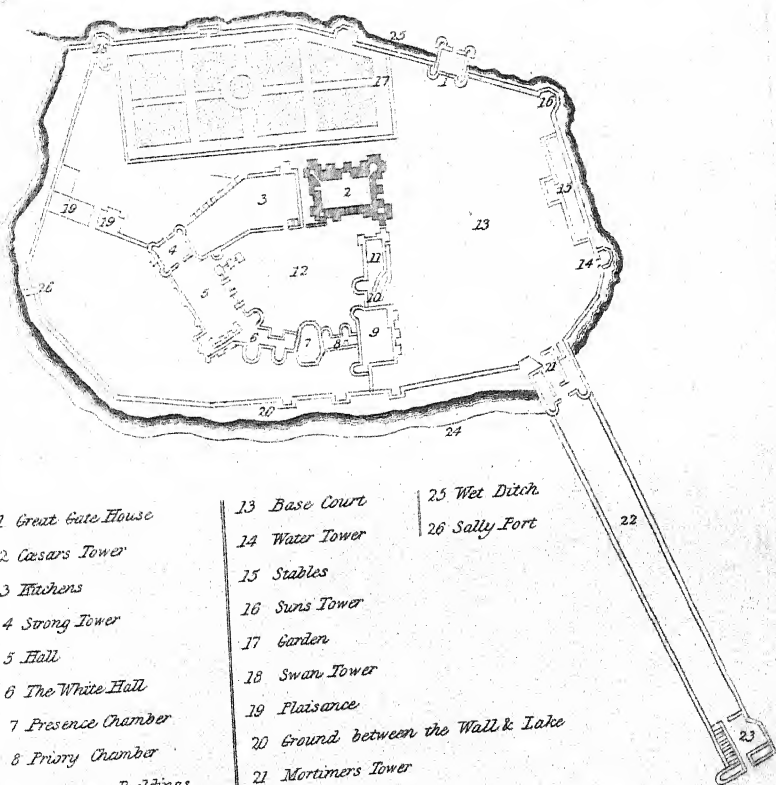 25
18
17
1
16
3
2
15
19
19
13
4
11
14
12
5
26
10
6
7
8
9
21
20
24
22
23
1 Great Gate House
2 Cæsars Tower
3 Kitchens
4 Strong Tower
5 Hall
6 The White Hall
7 Presence Chamber
8 Priory Chamber
Buildings
13 Base Court
14 Water Tower
15 Stables
16 Suns Tower
17 Garden
18 Swan Tower
19 Plaisance
20 Ground between the Wall & Lake
21 Mortimers Tower
25 Wet Ditch
26 Sally Port